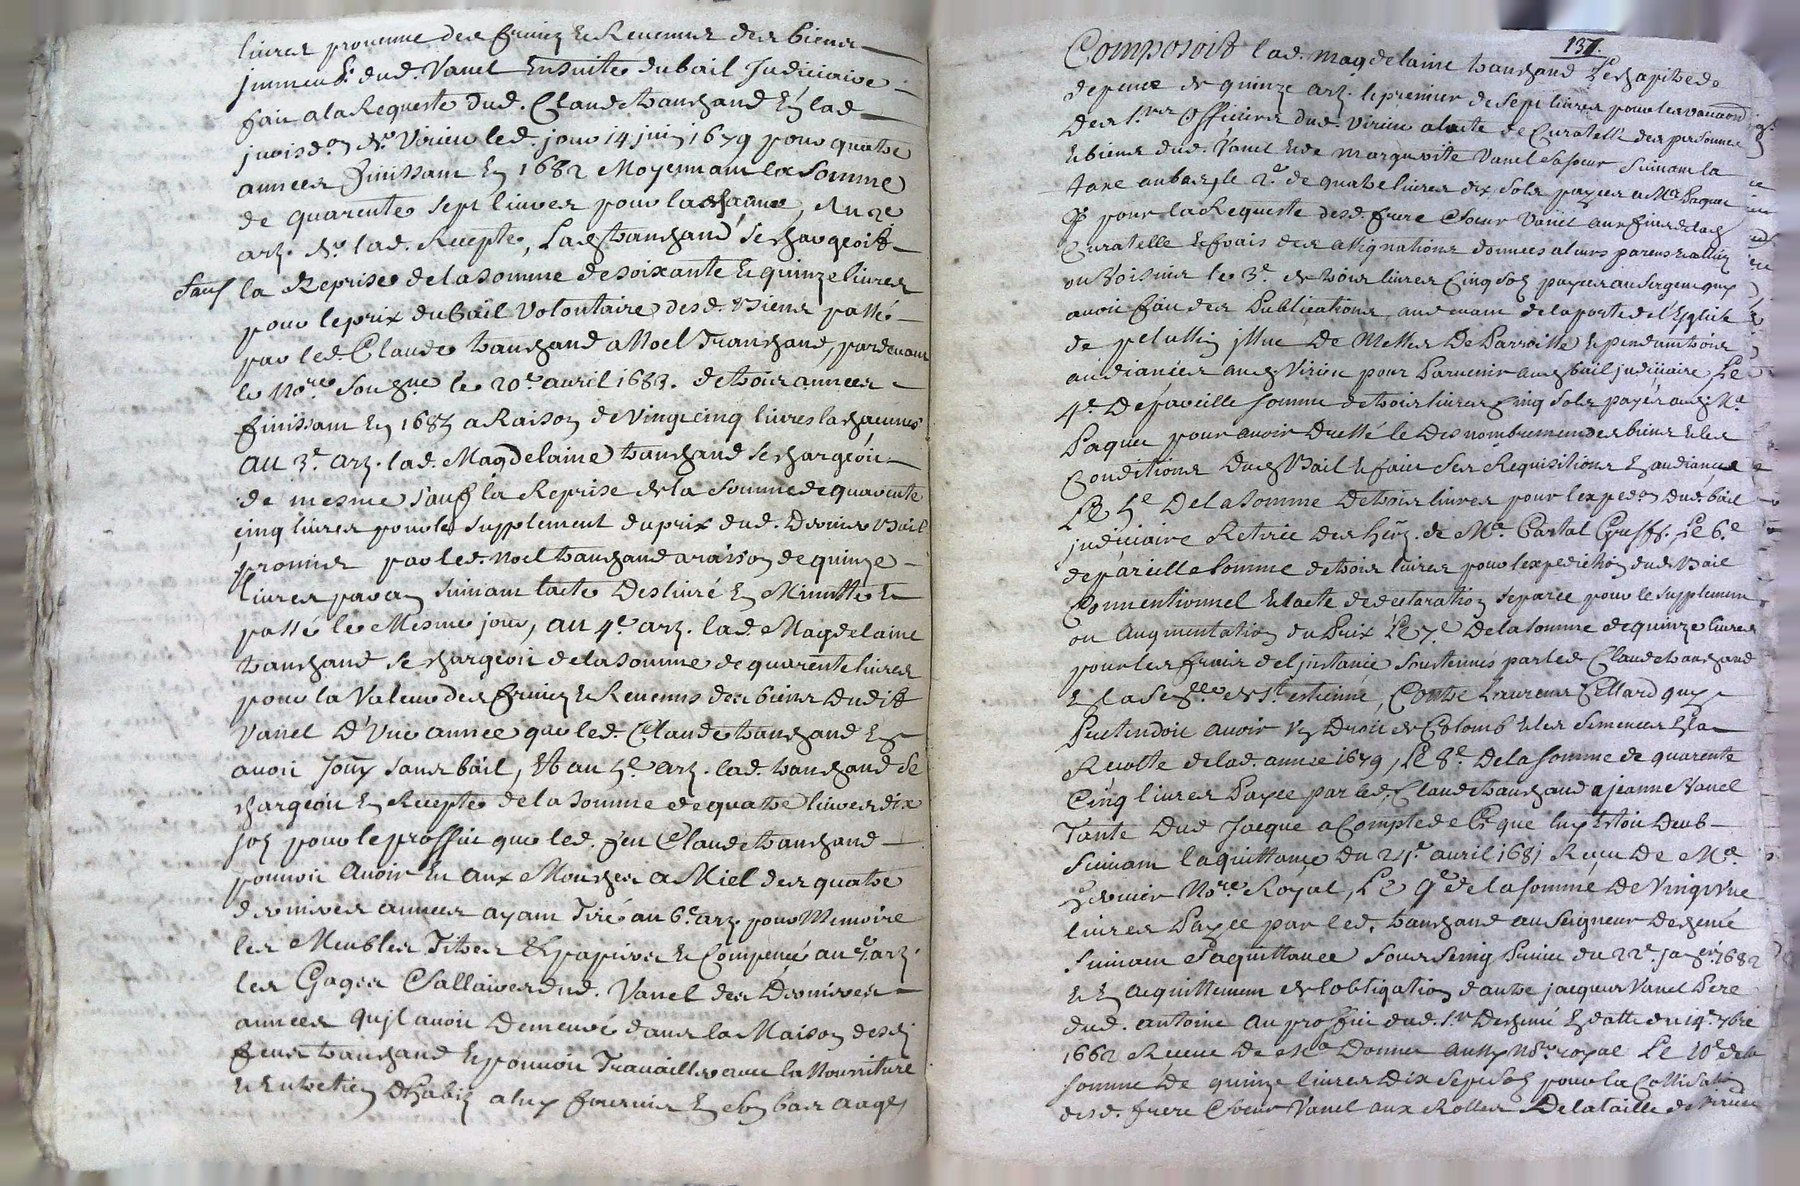 livres provenue des fruicz & Revenus des biens
jmmeubl. dud. Vanel Ensuite du bail Judiciaire
fait a la Requeste dud. Claude tranchand En lad.
jurisdon. de Virieu led. jour 14 juin 1679 pour quatre
années finissant En 1682 Moyennant la Somme
de quarente sept livres pour la chacune, Au 2e
arz. de lad. Recepte, Lad. tranchand se chargeoit
sauf la Reprise de la somme de soixante & quinze livres
pour le prix du bail Volontaire desd. biens passé
par led. Claude tranchand a Noel Tranchand, pardevant
le Nore. Sousgne. le 20e avril 1683. de trois années
finissant En 1685 a Raison de Vingt cinq livres la chacune
Au 3e. arz. lad. Magdelaine tranchand se chargeoit
de mesme sauf la Reprise de la somme de quarente
cinq livres pour le supplement du prix dud. Dernier bail
promis par led. Noel tranchand a raison de quinze
livres par an suivant l'acte Deslivré En Minutte &
passé le Mesme jour, au 4e. arz. lad. Magdelaine
tranchand se chargeoit de la somme de quarente livres
pour la Valeur des fruicz & Revenus des biens Dudit
Vanel D'Une année que led. Claude tranchand En
avoit Jouy sans bail, Et au 5e. arz. lad. tranchand se
chargeoit En Recepte de la somme de quatre livres dix
solz pour le proffit que led. feu Claude tranchand
pouvoit Avoir Eu aux Mouches a Miel des quatre
dernieres années ayant Tiré au 6e arz. pour Memoire
les Meubles Titres & papiers & Compensé au 7e. arz.
les Gages & Sallaires dud. Vanel des Dernieres
années qujl avoit Demeuré dans la Maison desd.
feus tranchand & pouvoit Travailler avec la Nourriture
& Entretien D'habiz a luy fournis En son bas aage,
137.
Composoit lad. magdelaine tranchand Le chapitre de
depence de quinze arz. le premier de sept livres pour les vacaons
Des Srs. Officiers dud. Virieu a l'acte de Curatelle des personnes
& biens dud. Vanel & de marguerite Vanel sa sœur suivant la
taxe au bas, le 2e. de quatre livres dix solz payées a Me Paquet
pour la Requeste desd. frere & sœur Vanel aux fins de lad.
Curatelle & frais des assignations données a leurs parens
ou Voisins le 3e. de trois livres Cinq solz payés au sergent quy
avoit fait des Publications au devant de la porte de l'Eglise
de pelussin jssue De Messes De Parroisse & pendant trois
audiances aud. Virieu pour Parvenir aud. bail judiciaire, Le
4e. De pareille somme de trois livres Cinq solz payés aud. Me.
Paquet pour avoir Dressé le Desnombrement des biens & les
Conditions Dud. Bail & faire ses Requisitions En audiance
Le 5e De la somme De trois livres pour l'expedon. dud. bail
judiciaire Retirée Des Hers. de Me. Greff. Le 6e.
de pareille somme de trois livres pour l'expedition dud. Bail
Conventionnel & l'acte de declaration separée pour le supplement
ou Augmentation du Prix Le 7e. De la somme de quinze livres
pour les frais de l'jnstance soustenüe par led. Claude tranchand
En la Senee. de St. estienne, Contre Laurens Collard quy
Pretendoit avoir Un Droit de Colomb & les semences En la
Recolte de lad. année 1679, Le 8e. De la somme de quarente
Cinq livres Payée par led. Claude tranchand a jeanne Vanel
Tante Dud. Jacque a Compte de Ce que luy Estoit Deub
Suivant la quittance Du 25e. avril 1681 Receu De Me.
Nore. Royal, Le 9e de la somme De Vingt Une
livres Payée par led. tranchand au Seigneur De
Suivant sa quittance sous seing Privé du 22e. 1682
& En acquittement de l'obligation d'autre jacques Vanel Pere
dud. antoine Au proffit dud. Sr. En datte du 14e. 7bre
1662 Receue De Me Donnet aussy Nore. royal Le 10e de la
somme De quinze livres Dix sept solz pour la Cottisation
desd. frere & sœur Vanel aux Rolles De la taille de Virieu